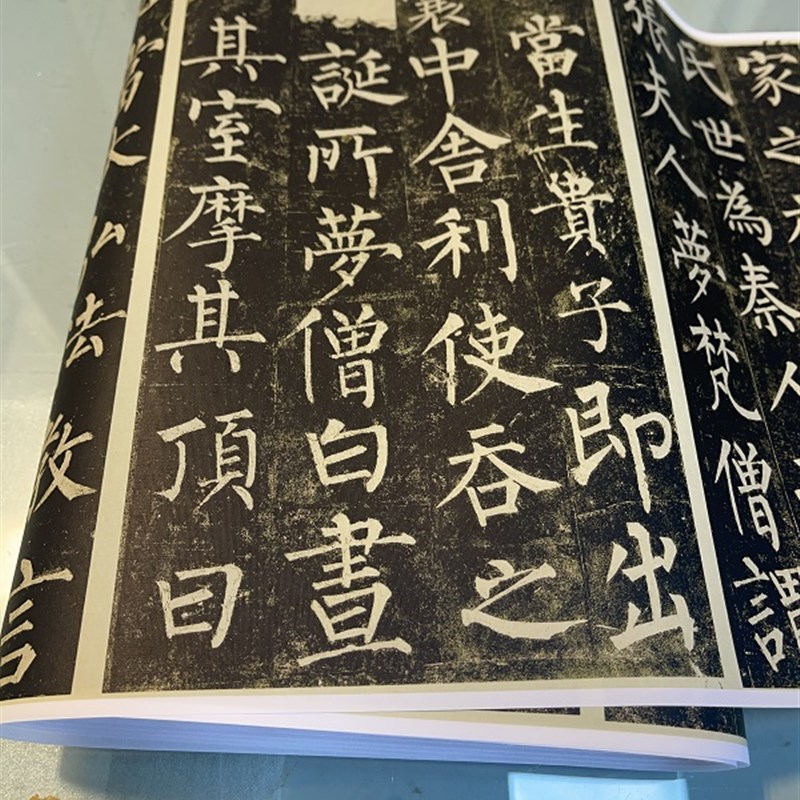 家之
氏世為秦人
張夫人夢梵僧謂
當生貴子即出
中舍利使吞之
誕所夢僧白晝
其室摩其頂曰
當大弘法教言